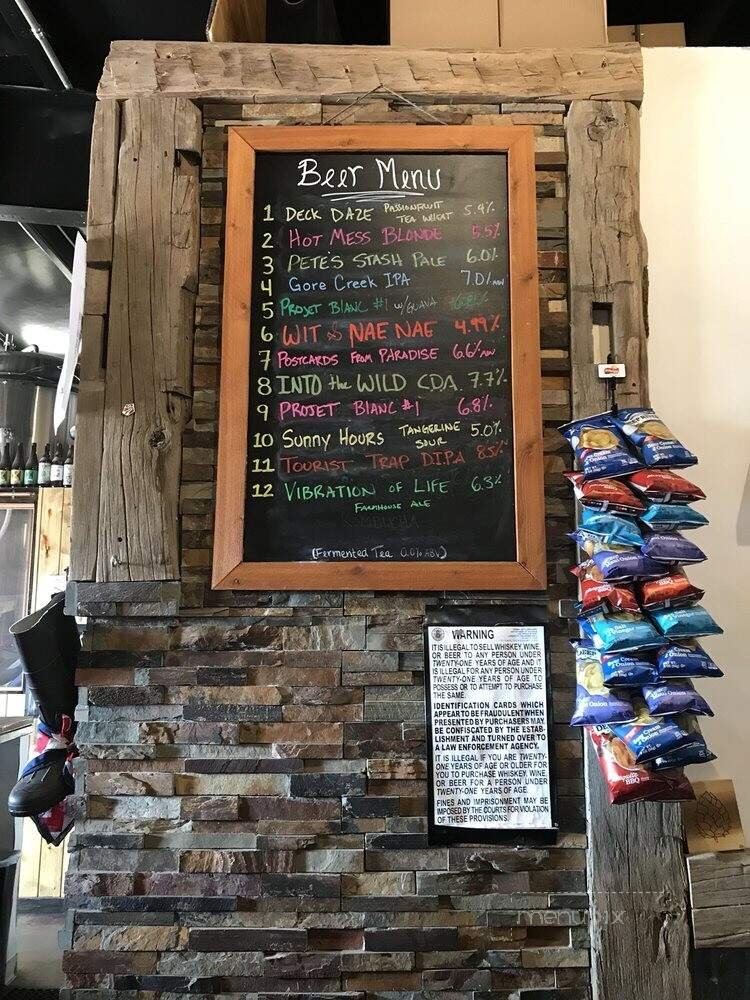 Beer Menu
1 DECK DAZE PASSIONFRUIT TEA WHEAT 5.4%
2 HOT MESS BLONDE 5.5%
3 PETE'S STASH PALE 6.0%
4 Gore Creek IPA 7.0%
5 PROJET BLANC #1 w/GUAVA
6 WIT NAE NAE 4.99%
7 POSTCARDS FROM PARADISE 6.6%
8 INTO the WILD CDA. 7.7%
9 PROJET BLANC #1 6.8%
10 Sunny Hours TANGERINE SOUR 5.0%
11 TOURIST TRAP D.I.P.A 8.5%
12 VIBRATION OF LIFE 6.3%
FARMHOUSE ALE
(Fermented Tea 0.0% ABV)
WARNING
IT IS ILLEGAL TO SELL WHISKEY, WINE,
OR BEER TO ANY PERSON UNDER
TWENTY-ONE YEARS OF AGE AND IT
IS ILLEGAL FOR ANY PERSON UNDER
TWENTY-ONE YEARS OF AGE TO
POSSESS OR TO ATTEMPT TO PURCHASE
THE SAME.
IDENTIFICATION CARDS WHICH
APPEAR TO BE FRAUDULENT WHEN
PRESENTED BY PURCHASERS MAY
BE CONFISCATED BY THE ESTAB-
LISHMENT AND TURNED OVER TO
A LAW ENFORCEMENT AGENCY.
IT IS ILLEGAL IF YOU ARE TWENTY-
ONE YEARS OF AGE OR OLDER FOR
YOU TO PURCHASE WHISKEY, WINE,
OR BEER FOR A PERSON UNDER
TWENTY-ONE YEARS OF AGE.
FINES AND IMPRISONMENT MAY BE
IMPOSED BY THE COURTS FOR VIOLATION
OF THESE PROVISIONS.
menupix